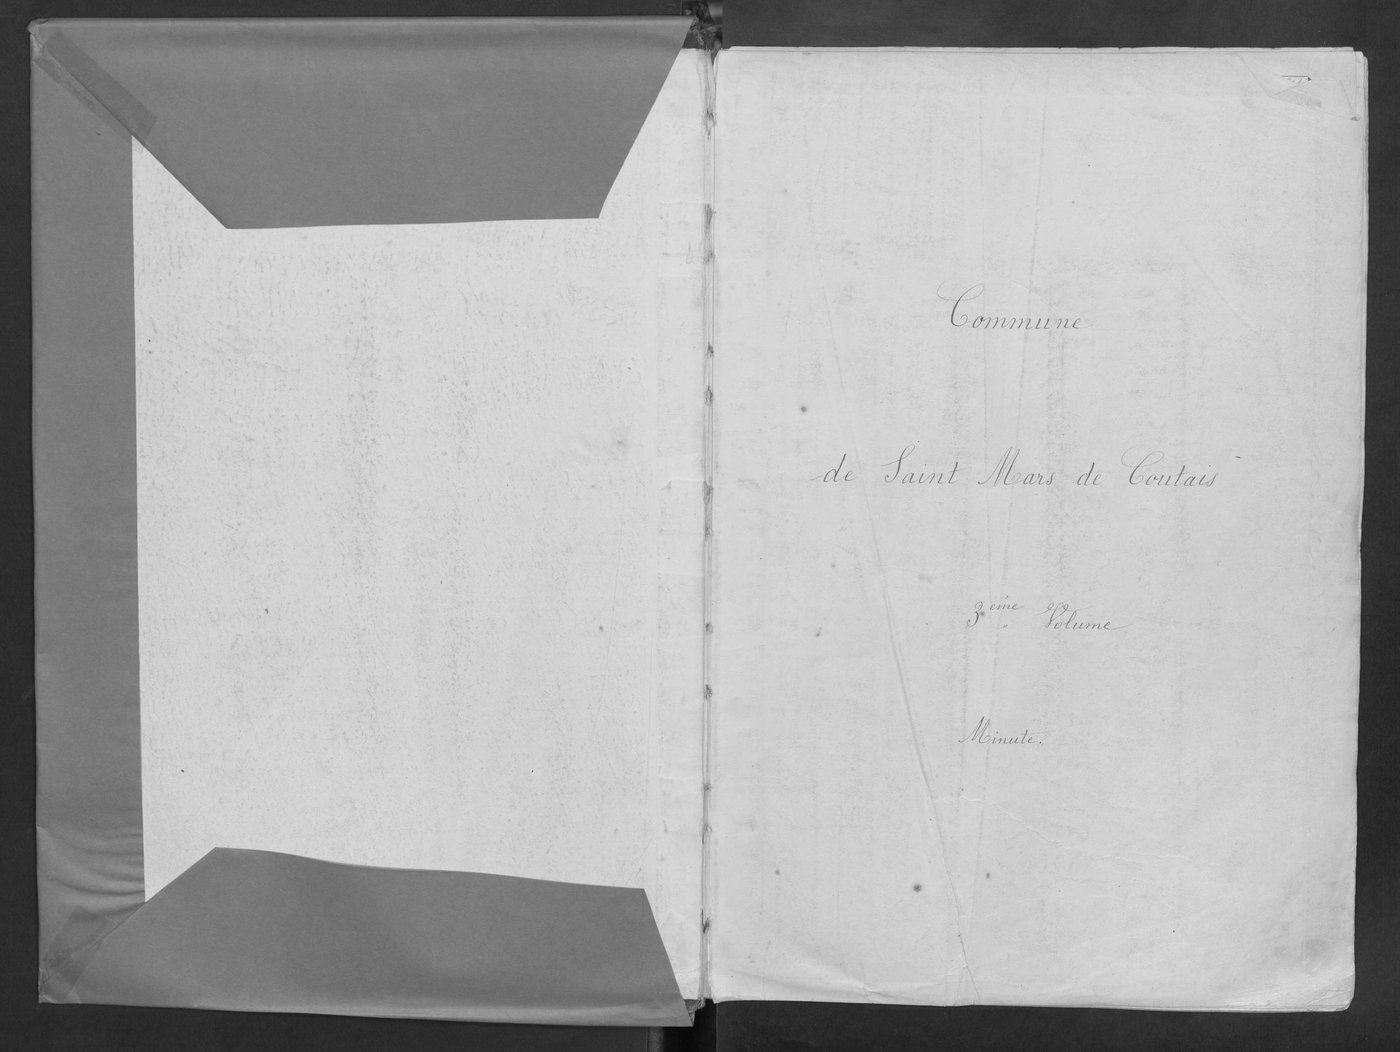 Commune
de Saint Mars de Coutais
3ème Volume
Minute.